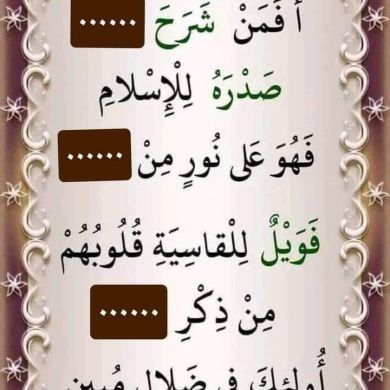 أَفَمَنْ شَرَحَ ......
صَدْرَهُ لِلْإِسْلَامِ
فَهُوَ عَلَى نُورٍ مِنْ ......
فَوَيْلٌ لِلْقَاسِيَةِ قُلُوبُهُمْ
مِنْ ذِكْرِ ......
أُولَئِكَ فِي ضَلَالٍ مُبِينٍ